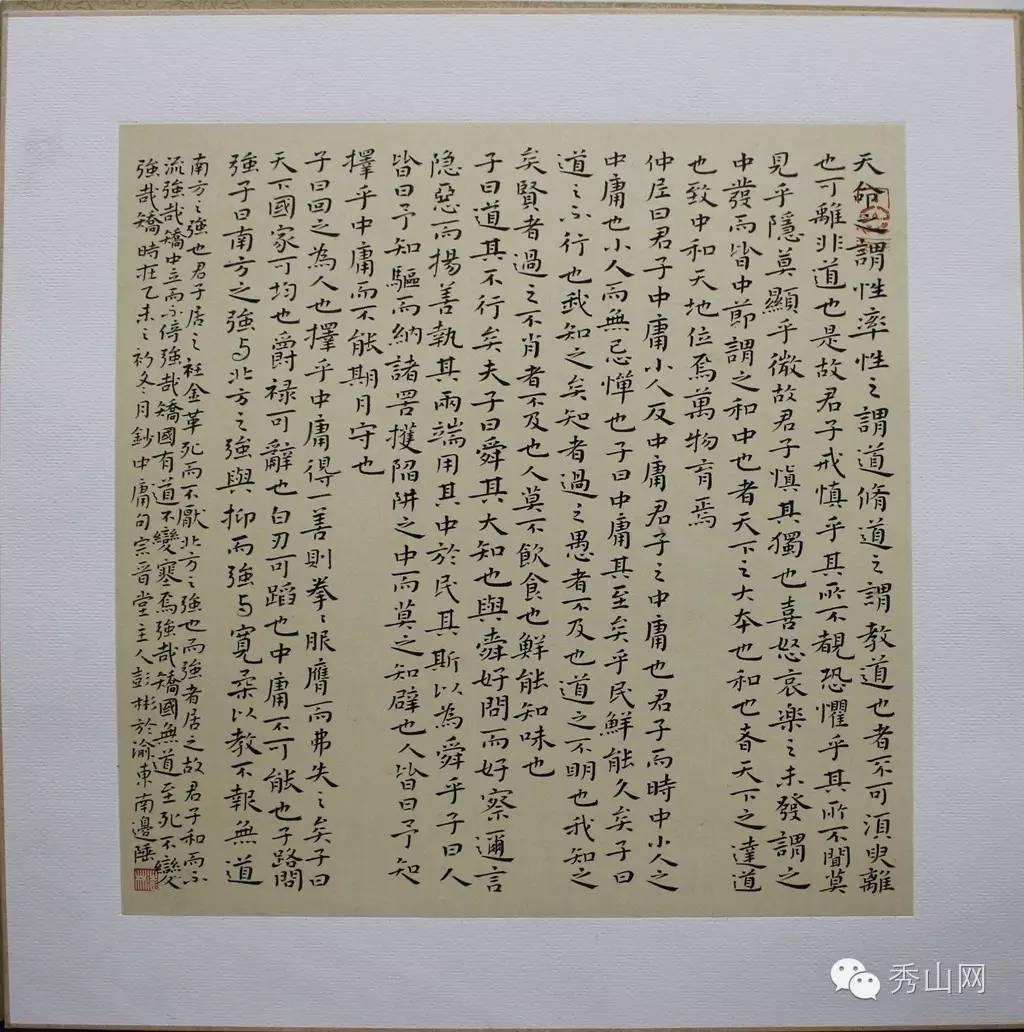 天命之謂性率性之謂道脩道之謂教道也者不可須臾離
也可離非道也是故君子戒慎乎其所不覩恐懼乎其所不聞莫
見乎隱莫顯乎微故君子慎其獨也喜怒哀樂之未發謂之
中發而皆中節謂之和中也者天下之大本也和也者天下之達道
也致中和天地位焉萬物育焉
仲尼曰君子中庸小人反中庸君子之中庸也君子而時中小人之
中庸也小人而無忌憚也子曰中庸其至矣乎民鮮能久矣子曰
道之不行也我知之矣知者過之愚者不及也道之不明也我知之
矣賢者過之不肖者不及也人莫不飲食也鮮能知味也
子曰道其不行矣夫子曰舜其大知也與舜好問而好察邇言
隐惡而揚善執其兩端用其中於民其斯以為舜乎子曰人
皆曰予知驅而納諸罟擭陷阱之中而莫之知辟也人皆曰予知
擇乎中庸而不能期月守也
子曰回之為人也擇乎中庸得一善則拳〻服膺而弗失之矣子曰
天下國家可均也爵禄可辭也白刃可蹈也中庸不可能也子路問
強子曰南方之強与北方之強與抑而強与寬柔以教不報無道
南方之強也君子居之衽金革死而不厭北方之強也而強者居之故君子和而不
流強哉矯中立而不倚強哉矯國有道不變塞焉強哉矯國無道至死不變
強哉矯時在乙未之初冬月鈔中庸句宗晉堂主人彭彬於渝東南邊陲
秀山网